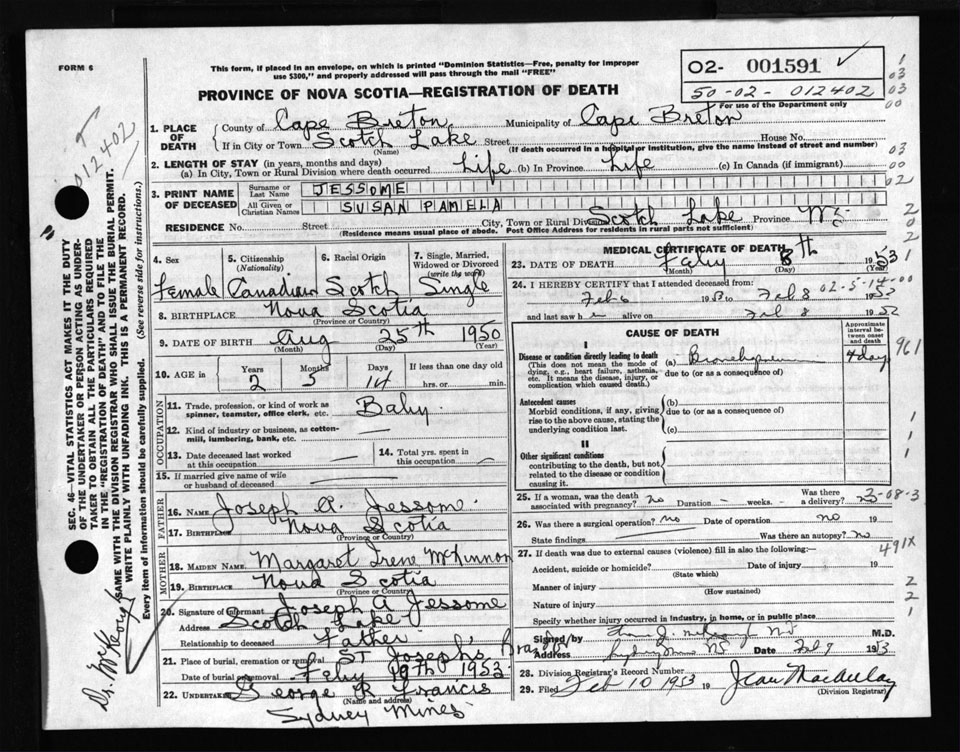 FORM 6
This form, if placed in an envelope, on which is printed "Dominion Statistics—Free, penalty for improper
use $300," and properly addressed will pass through the mail "FREE"
PROVINCE OF NOVA SCOTIA—REGISTRATION OF DEATH
02- 001591
50-02-012402
For use of the Department only
012402
1. PLACE OF DEATH
County of Cape Breton Municipality of Cape Breton
If in City or Town Scotch Lake Street House No.
(Name) (If death occurred in a hospital or institution, give the name instead of street and number)
2. LENGTH OF STAY (in years, months and days)
(a) In City, Town or Rural Division where death occurred Life (b) In Province Life (c) In Canada (if immigrant)
3. PRINT NAME OF DECEASED
Surname or Last Name JESSOME
All Given or Christian Names SUSAN PAMELA
RESIDENCE No. Street City, Town or Rural Division Scotch Lake Province
(Residence means usual place of abode. Post Office Address for residents in rural parts not sufficient)
4. Sex Female
5. Citizenship (Nationality) Canadian
6. Racial Origin Scotch
7. Single, Married, Widowed or Divorced (write the word) Single
8. BIRTHPLACE Nova Scotia
(Province or Country)
9. DATE OF BIRTH Aug 25th 1950
(Month) (Day) (Year)
10. AGE in Years 2 Months 5 Days 14 If less than one day old
hrs. or min.
OCCUPATION
11. Trade, profession, or kind of work as spinner, teamster, office clerk, etc. Baby
12. Kind of industry or business, as cotton-mill, lumbering, bank, etc. —
13. Date deceased last worked at this occupation —
14. Total yrs. spent in this occupation —
15. If married give name of wife or husband of deceased —
FATHER
16. Name Joseph A. Jessome
17. Birthplace Nova Scotia
(Province or Country)
MOTHER
18. MAIDEN NAME Margaret Irene McKinnon
19. BIRTHPLACE Nova Scotia
(Province or Country)
20. Signature of informant Joseph A Jessome
Address Scotch Lake
Relationship to deceased Father
21. Place of burial, cremation or removal St Josephs,
Date of burial or removal Feby 10th 1953
22. UNDERTAKER George R Francis
(Name and address)
Sydney Mines
MEDICAL CERTIFICATE OF DEATH
23. DATE OF DEATH Feby 8th 1953
(Month) (Day) (Year)
24. I HEREBY CERTIFY that I attended deceased from:
Feb 6 1953 to Feb 8 1953
02-5-14-00
and last saw h alive on Feb 8 19
CAUSE OF DEATH
Approximate interval between onset and death
I
Disease or condition directly leading to death (a) 4 day
(This does not mean the mode of dying, e.g., heart failure, asthenia, etc. It means the disease, injury, or complication which caused death.)
due to (or as a consequence of)
961
Antecedent causes (b)
Morbid conditions, if any, giving rise to the above cause, stating the underlying condition last.
due to (or as a consequence of)
(c)
II
Other significant conditions
contributing to the death, but not related to the disease or condition causing it.
25. If a woman, was the death associated with pregnancy? no Duration - weeks. - Was there a delivery?
3-08-3
26. Was there a surgical operation? no Date of operation no 19
State findings Was there an autopsy? no
27. If death was due to external causes (violence) fill in also the following:—
491X
Accident, suicide or homicide? Date of injury 19
(State which)
Manner of injury
(How sustained)
Nature of injury
Specify whether injury occurred in industry, in home, or in public place
Signed by M.D.
Address Sydney Mines NS Date Feb 9 1953
28. Division Registrar's Record Number
29. Filed Feb 10 1953 19 Jean MacAulay
(Division Registrar)
SEC. 46—VITAL STATISTICS ACT MAKES IT THE DUTY
OF THE UNDERTAKER OR PERSON ACTING AS UNDER-
TAKER TO OBTAIN ALL THE PARTICULARS REQUIRED
IN THE "REGISTRATION OF DEATH" AND TO FILE THE
SAME WITH THE DIVISION REGISTRAR WHO SHALL ISSUE THE BURIAL PERMIT.
WRITE PLAINLY WITH UNFADING INK. THIS IS A PERMANENT RECORD.
Every item of information should be carefully supplied. (See reverse side for instructions.)
Dr. McKeough